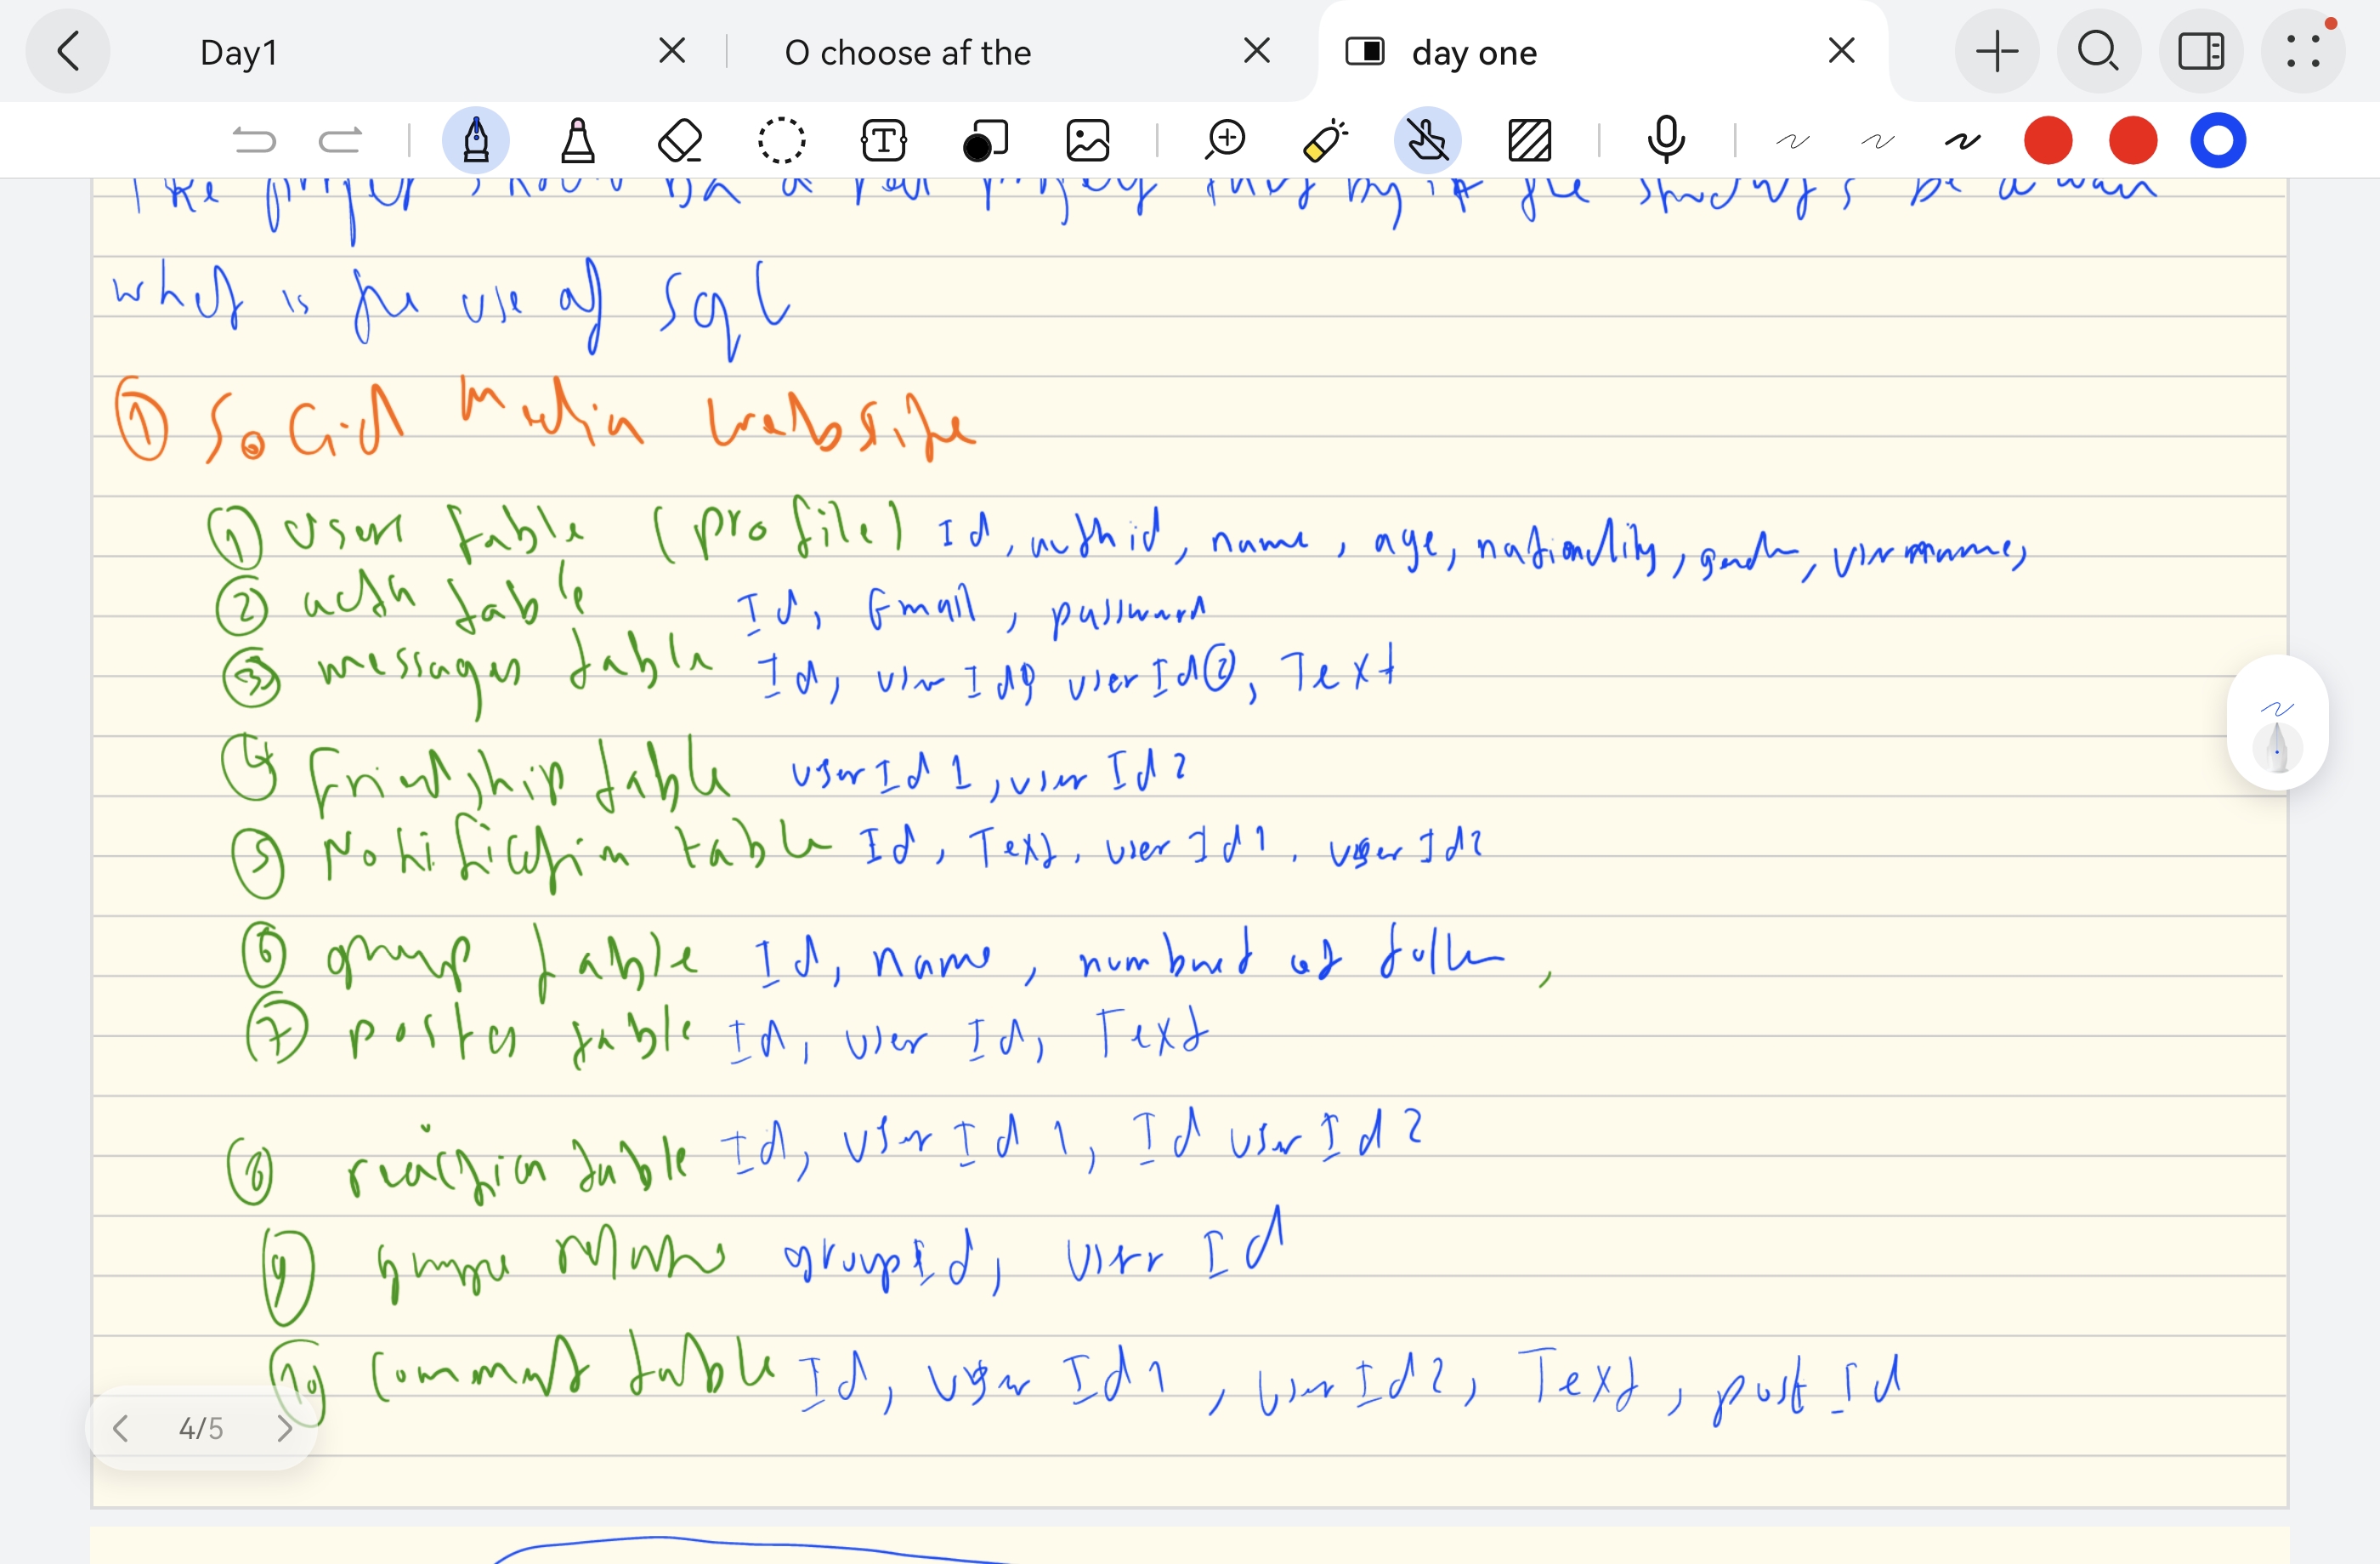 Day1 O choose af the day one
what is the use of Sql
① Social Media Website
① User table (profile) Id, authid, name, age, nationality, gender, username,
② auth table Id, Email, password
③ messages table Id, user Id①, userId②, Text
④ Friendship table userId 1, user Id 2
⑤ Notification table Id, Text, user Id 1, user Id 2
⑥ group table Id, name, of
⑦ postes table Id, user Id, Text
⑧ table Id, user Id 1, Id user Id 2
⑨ groupId, user Id
⑩ Comment table Id, user Id 1, user Id 2, Text, post Id
4/5